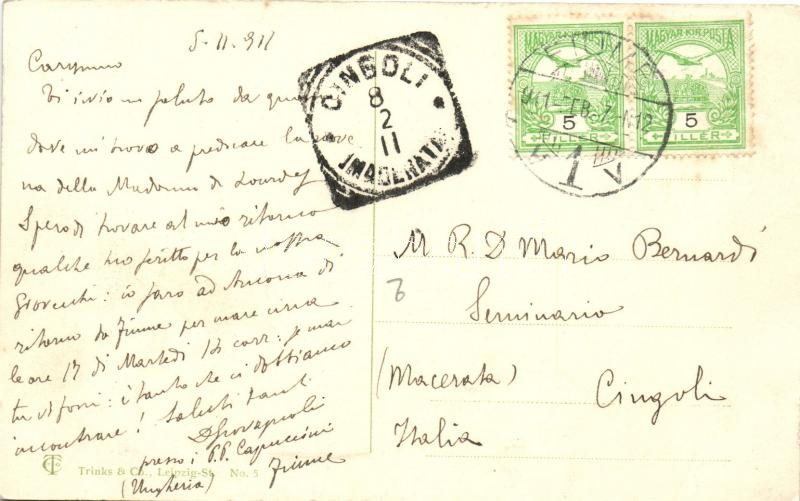 5-II-911
Carissimo
Ti invio un saluto da qui
dove mi trovo a predicare la nove
na della Madonna di Lourdes
Spero di trovare al mio ritorno
qualche tuo scritto per la nostra
: io sarò ad Ancona di
ritorno da Fiume per mare circa
le ore 17 di Martedì 14 corr: se mai
tu vi fossi: è tanto che ci dobbiamo
incontrare! Saluti tanti
D
presso i P.P. Cappuccini
(Ungheria) Fiume
CINGOLI
8
2
11
(MACERATA)
MAGYAR KIR. POSTA
5
FILLÉR
MAGYAR KIR. POSTA
5
FILLÉR
FIUME
911 FEB. 7
M. R. D. Mario Bernardi
Seminario
(Macerata) Cingoli
Italia
6
Trinks & Co., Leipzig-St. No. 5